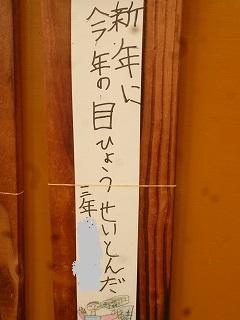 新年に
今年の目ひょうせいとんだ
三年